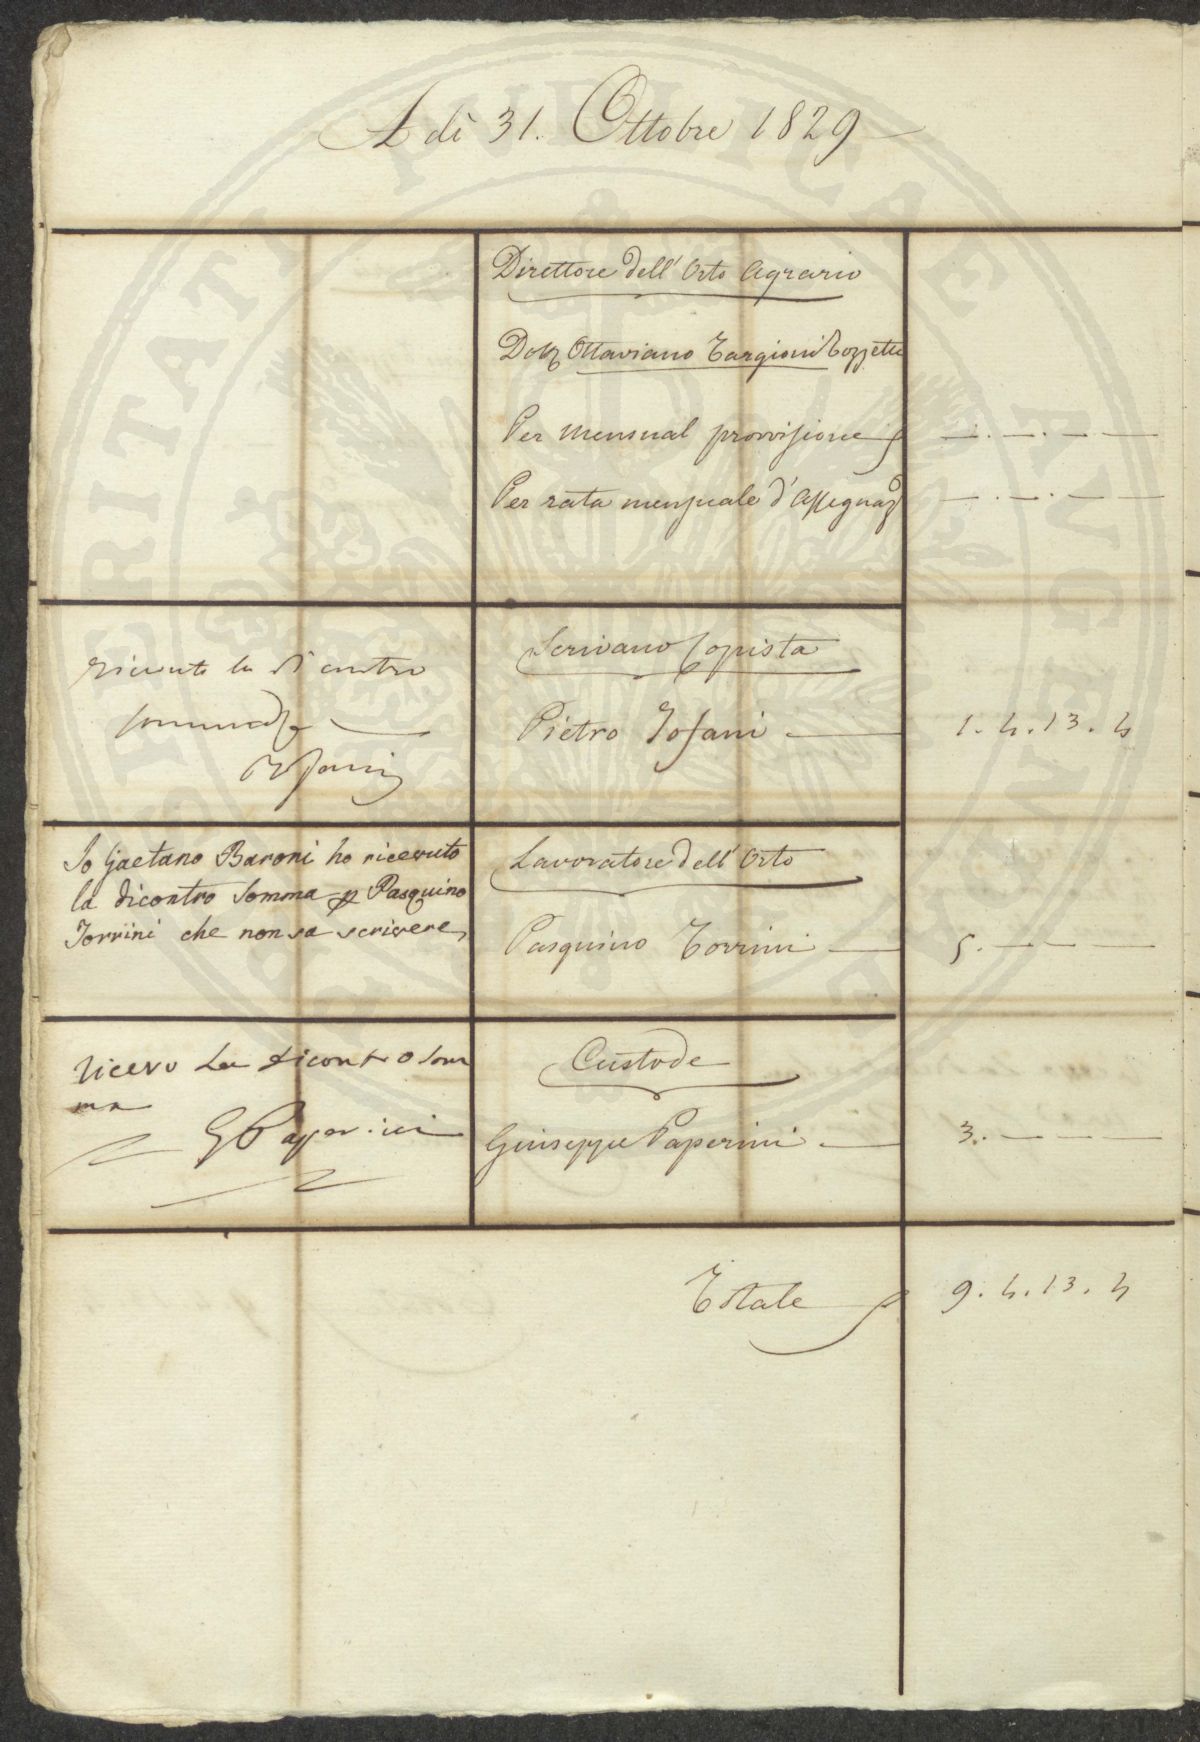 A dì 31. Ottobre 1829
Direttore dell' Orto Agrario
Dott Ottaviano Targioni Tozzetti
Per mensual provvisione
Per rata mensuale d'Assegnaz
ricevuto la di contro
somma
Tofani
Scrivano Copista
Pietro Tofani
1. 4. 13. 4
Io Gaetano Baroni ho ricevuto
la dicontro Somma p Pasquino
Torrini che non sa scrivere
Lavoratore dell' Orto
Pasquino Torrini
5. — — —
ricevo La dicontro som
ma
G Paperini
Custode
Giuseppe Paperini
3. — — —
Totale
9. 4. 13. 4